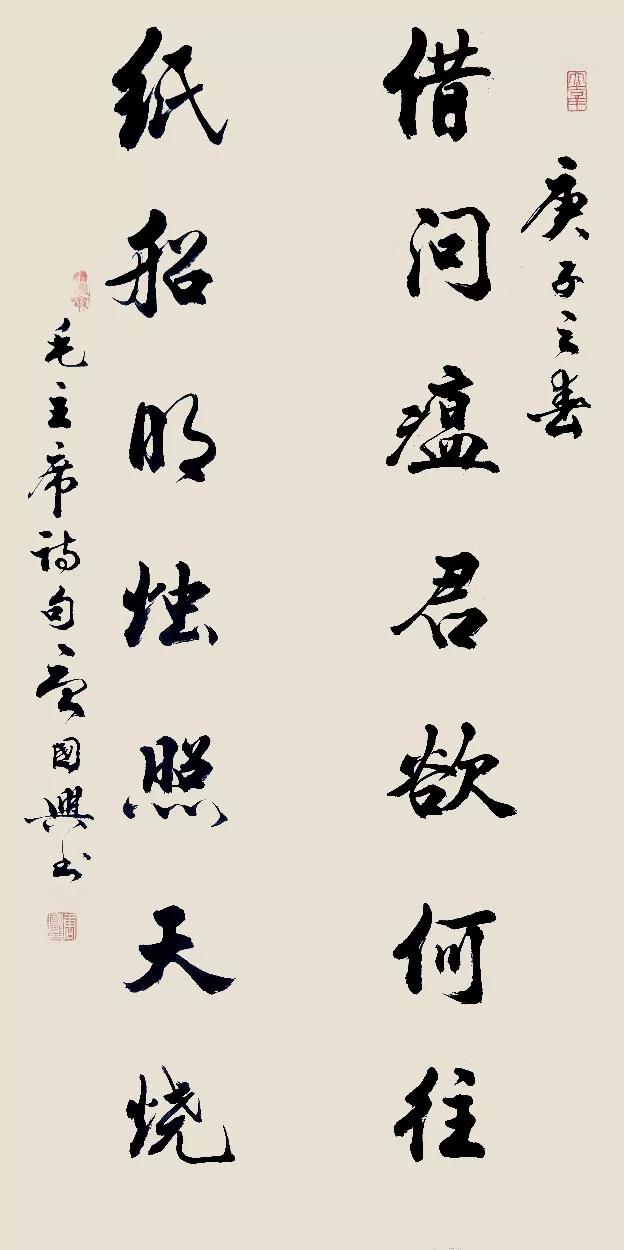 庚子之春
借问瘟君欲何往
纸船明烛照天烧
毛主席诗句國興书